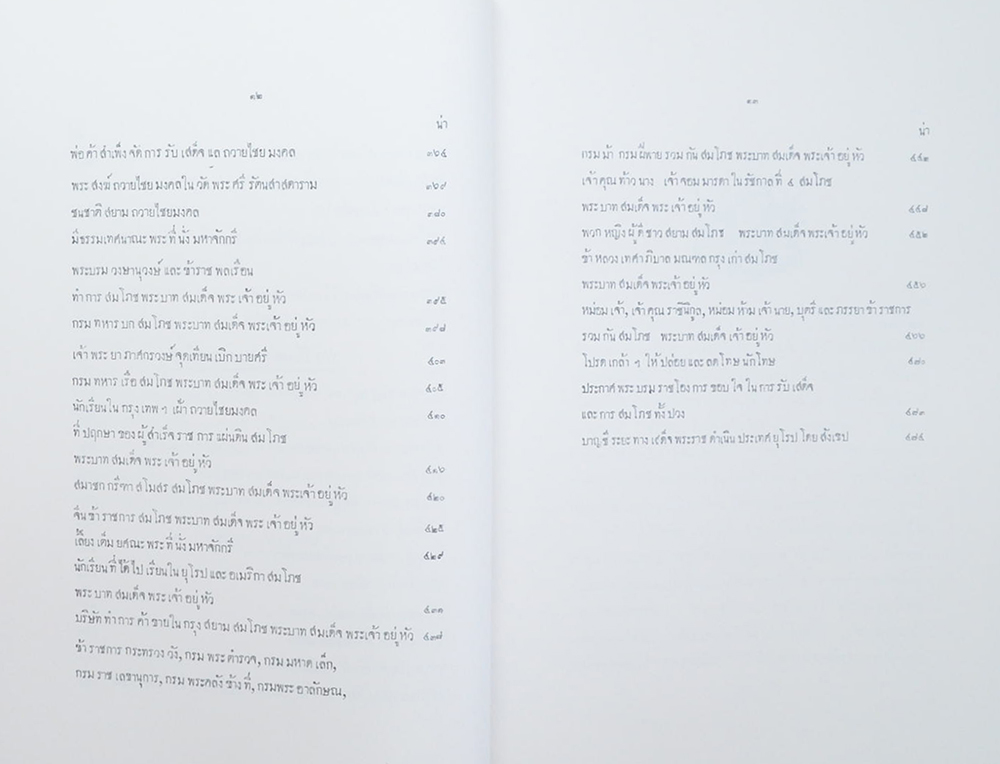 ๑๒
น่า
พ่อ ค้า สำเพ็ง จัด การ รับ เสด็จ แล ถวายไชย มงคล ๓๖๔
พระ สงฆ์ ถวายไชย มงคลใน วัด พระ ศรี รัตนสาสดาราม ๓๖๙
ชนชาติ สยาม ถวายไชยมงคล ๓๘๐
มีธรรมเทศนาณะ พระ ที่ นั่ง มหาจักกรี ๓๙๔
พระบรม วงษานุวงษ์ และ ข้าราช พลเรือน
ทำ การ สมโภช พระบาท สมเด็จ พระ เจ้า อยู่ หัว ๓๙๕
กรม ทหาร บก สมโภช พระบาท สมเด็จ พระเจ้า อยู่ หัว ๓๙๘
เจ้า พระ ยา ภาศกรวงษ์ จุดเทียน เบิก บายศรี ๔๐๓
กรม ทหาร เรือ สมโภช พระบาท สมเด็จ พระ เจ้า อยู่ หัว ๔๐๕
นักเรียนใน กรุง เทพ ฯ เฝ้า ถวายไชยมงคล ๔๑๐
ที่ ปฤกษา ของ ผู้ สำเร็จ ราช การ แผ่นดิน สมโภช
พระบาท สมเด็จ พระ เจ้า อยู่ หัว ๔๑๖
สมาชก กรีฑา สโมสร สมโภช พระบาท สมเด็จ พระเจ้า อยู่ หัว ๔๒๐
จีน ข้า ราชการ สมโภช พระบาท สมเด็จ พระ เจ้า อยู่ หัว ๔๒๕
เลี้ยง เต็ม ยศณะ พระ ที่ นั่ง มหาจักกรี ๔๒๙
นักเรียน ที่ ได้ ไป เรียนใน ยุโรป และ อเมริกา สมโภช
พระ บาท สมเด็จ พระเจ้า อยู่ หัว ๔๓๑
บริษัท ทำ การ ค้า ขายใน กรุง สยาม สมโภช พระบาท สมเด็จ พระเจ้า อยู่ หัว ๔๓๗
ข้า ราชการ กระทรวง วัง, กรม พระ ตำรวจ, กรม มหาด เล็ก,
กรม ราช เลขานุการ, กรม พระคลัง ข้าง ที่, กรมพระ อาลักษณ,
๑๓
น่า
กรม ม้า กรม ฝีพาย รวม กัน สมโภช พระบาท สมเด็จ พระเจ้า อยู่ หัว ๔๔๑
เจ้า คุณ ท้าว นาง เจ้า จอม มารดา ใน รัชกาล ที่ ๔ สมโภช
พระ บาท สมเด็จ พระ เจ้า อยู่ หัว ๔๔๗
พวก หญิง ผู้ ดี ชาว สยาม สมโภช พระบาท สมเด็จ พระเจ้า อยู่ หัว ๔๕๒
ข้า หลวง เทศา ภิบาล มณฑล กรุง เก่า สมโภช
พระบาท สมเด็จ พระเจ้า อยู่ หัว ๔๕๖
หม่อม เจ้า, เจ้า คุณ ราชินิกูล, หม่อม ห้าม เจ้า นาย, บุตรี และ ภรรยา ข้า ราชการ
รวม กัน สมโภช พระบาท สมเด็จ เจ้า อยู่ หัว ๔๖๖
โปรด เกล้า ฯ ให้ ปล่อย และ ลดโทษ นักโทษ ๔๗๐
ประกาศ พระ บรม ราชโองการ ขอบ ใจ ใน การ รับ เสด็จ
และ การ สมโภช ทั้ง ปวง ๔๗๓
บาญชี ระยะ ทาง เสด็จ พระราช ดำเนิน ประเทศ ยุโรป โดย สังเขป ๔๗๔